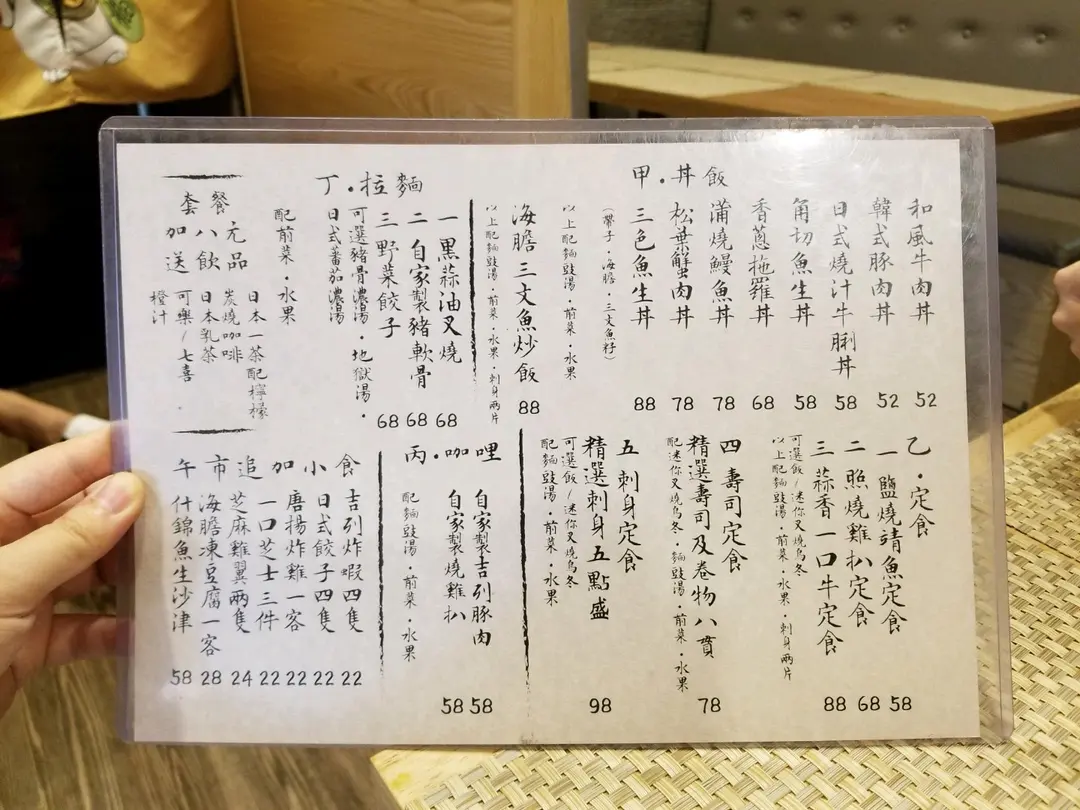 甲．丼飯
和風牛肉丼 52
韓式豚肉丼 52
日式燒汁牛脷丼 58
角切魚生丼 58
香蔥拖羅丼 68
蒲燒鰻魚丼 78
松葉蟹肉丼 78
三色魚生丼 88
（帶子．海膽．三文魚籽）
以上配麵豉湯．前菜．水果
海膽三文魚炒飯 88
以上配麵豉湯．前菜．水果．刺身兩片
丁．拉麵
一 黑蒜油叉燒 68
二 自家製豬軟骨 68
三 野菜餃子 68
可選豬骨濃湯．地獄湯．
日式蕃茄濃湯
配前菜．水果
套餐
加八元
送飲品
日本一茶配檸檬
炭燒咖啡
日本乳茶
可樂/七喜
橙汁
乙．定食
一 鹽燒鯖魚定食 58
二 照燒雞扒定食 68
三 蒜香一口牛定食 88
可選飯/迷你叉燒烏冬
以上配麵豉湯．前菜．水果．刺身兩片
四 壽司定食
精選壽司及卷物八貫 78
配迷你叉燒烏冬．麵豉湯．前菜．水果
五 刺身定食
精選刺身五點盛 98
可選飯/迷你叉燒烏冬
配麵豉湯．前菜．水果
丙．咖哩
自家製吉列豚肉 58
自家製燒雞扒 58
配麵豉湯．前菜．水果
午市追加小食
吉列炸蝦四隻 22
日式餃子四隻 22
唐揚炸雞一客 22
一口芝士三件 22
芝麻雞翼兩隻 24
海膽凍豆腐一客 28
什錦魚生沙津 58